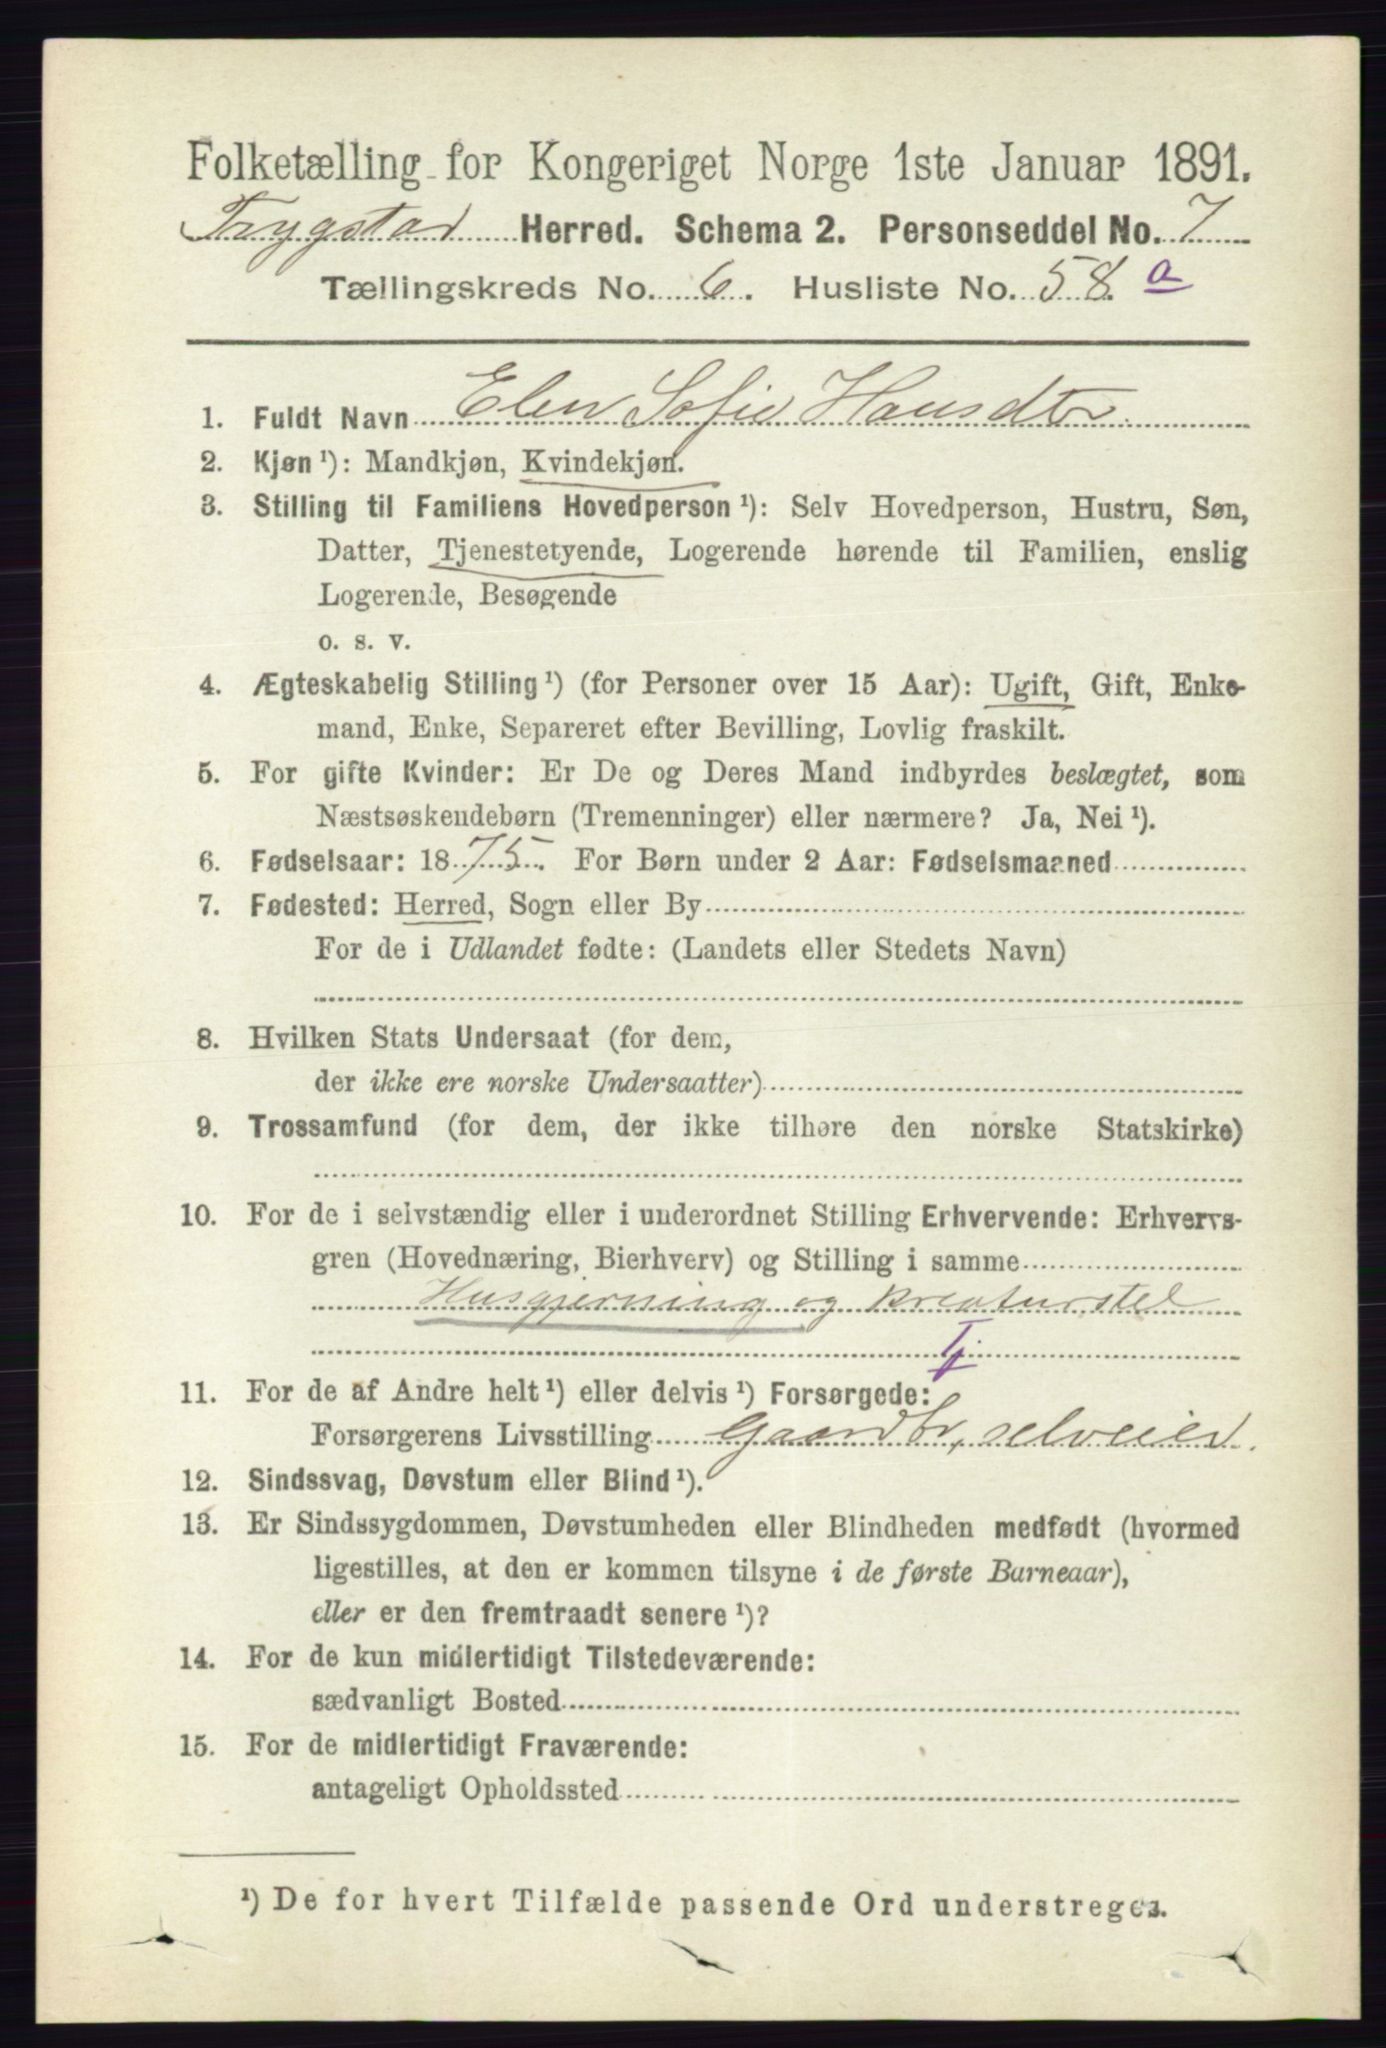 Folketælling for Kongeriget Norge 1ste Januar 1891.
Trygstad Herred. Schema 2. Personseddel No. 7
Tællingskreds No. 6. Husliste No. 58. a
1. Fuldt Navn Elen Sofie Hansdtr.
2. Kjøn ¹): Mandkjøn, Kvindekjøn.
3. Stilling til Familiens Hovedperson ¹): Selv Hovedperson, Hustru, Søn,
Datter, Tjenestetyende, Logerende hørende til Familien, enslig
Logerende, Besøgende
o. s. v.
4. Ægteskabelig Stilling ¹) (for Personer over 15 Aar): Ugift, Gift, Enke-
mand, Enke, Separeret efter Bevilling, Lovlig fraskilt.
5. For gifte Kvinder: Er De og Deres Mand indbyrdes beslægtet, som
Næstsøskendebørn (Tremenninger) eller nærmere? Ja, Nei ¹).
6. Fødselsaar: 1875. For Børn under 2 Aar: Fødselsmaaned
7. Fødested: Herred, Sogn eller By
For de i Udlandet fødte: (Landets eller Stedets Navn)
8. Hvilken Stats Undersaat (for dem,
der ikke ere norske Undersaatter)
9. Trossamfund (for dem, der ikke tilhøre den norske Statskirke)
10. For de i selvstændig eller i underordnet Stilling Erhvervende: Erhvervs-
gren (Hovednæring, Bierhverv) og Stilling i samme
Husgjerning og kreaturstel
Tj
11. For de af Andre helt ¹) eller delvis ¹) Forsørgede:
Forsørgerens Livsstilling Gaardbr, selveier.
12. Sindssvag, Døvstum eller Blind ¹).
13. Er Sindssygdommen, Døvstumheden eller Blindheden medfødt (hvormed
ligestilles, at den er kommen tilsyne i de første Barneaar),
eller er den fremtraadt senere ¹)?
14. For de kun midlertidigt Tilstedeværende:
sædvanligt Bosted
15. For de midlertidigt Fraværende:
antageligt Opholdssted
¹) De for hvert Tilfælde passende Ord understreges.